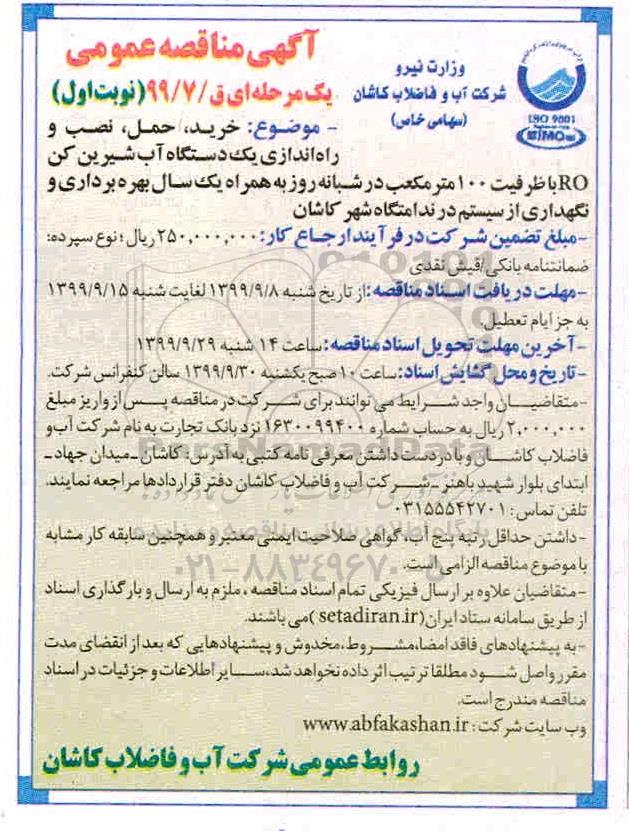 آگهی مناقصه عمومی
یک مرحله‌ای ق/۹۹/۷ (نوبت اول)
وزارت نیرو
شرکت آب و فاضلاب کاشان
(سهامی خاص)
ISO 9001
- موضوع: خرید، حمل، نصب و
راه‌اندازی یک دستگاه آب شیرین کن
RO با ظرفیت ۱۰۰ متر مکعب در شبانه روز به همراه یک سال بهره برداری و
نگهداری از سیستم در ندامتگاه شهر کاشان
-مبلغ تضمین شرکت در فرآیند ارجاع کار: ۲۵۰,۰۰۰,۰۰۰ ریال؛ نوع سپرده:
ضمانتنامه بانکی/فیش نقدی
-مهلت دریافت اسناد مناقصه: از تاریخ شنبه ۱۳۹۹/۹/۸ لغایت شنبه ۱۳۹۹/۹/۱۵
به جز ایام تعطیل.
-آخرین مهلت تحویل اسناد مناقصه: ساعت ۱۴ شنبه ۱۳۹۹/۹/۲۹
-تاریخ و محل گشایش اسناد: ساعت ۱۰ صبح یکشنبه ۱۳۹۹/۹/۳۰ سالن کنفرانس شرکت.
-متقاضیان واجد شرایط می توانند برای شرکت در مناقصه پس از واریز مبلغ
۲,۰۰۰,۰۰۰ ریال به حساب شماره ۱۶۳۰۰۹۹۴۰۰ نزد بانک تجارت به نام شرکت آب و
فاضلاب کاشان و با در دست داشتن معرفی نامه کتبی به آدرس: کاشان-میدان جهاد-
ابتدای بلوار شهید باهنر-شرکت آب و فاضلاب کاشان دفتر قراردادها مراجعه نمایند.
تلفن تماس: ۰۳۱۵۵۵۴۲۷۰۱
-داشتن حداقل رتبه پنج آب، گواهی صلاحیت ایمنی معتبر و همچنین سابقه کار مشابه
با موضوع مناقصه الزامی است.
-متقاضیان علاوه بر ارسال فیزیکی تمام اسناد مناقصه، ملزم به ارسال و بارگذاری اسناد
از طریق سامانه ستاد ایران (setadiran.ir) می باشند.
-به پیشنهادهای فاقد امضا، مشروط، مخدوش و پیشنهادهایی که بعد از انقضای مدت
مقرر واصل شود مطلقا ترتیب اثر داده نخواهد شد، سایر اطلاعات و جزئیات در اسناد
مناقصه مندرج است.
وب سایت شرکت: www.abfakashan.ir
روابط عمومی شرکت آب و فاضلاب کاشان
ParsNamadData
۰۲۱-۸۸۳۴۹۶۷۰-۵